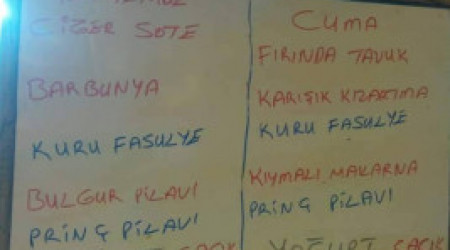 CİĞER SOTE
BARBUNYA
KURU FASULYE
BULGUR PİLAVI
PRİNÇ PİLAVI
CUMA
FIRINDA TAVUK
KARIŞIK KIZARTMA
KURU FASULYE
KIYMALI MAKARNA
PRİNÇ PİLAVI
YOĞURT CACIK